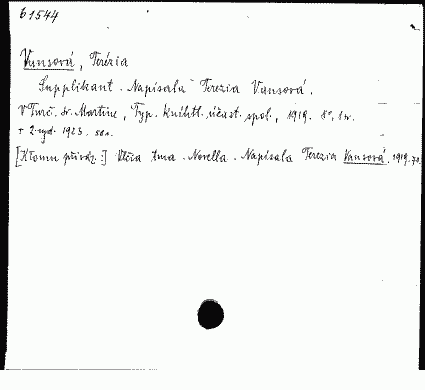 61544
Vansová, Terézia
Supplikant. Napísala Terezia Vansová.
V Turč. Sv. Martine, Typ. Knihtl. účast. spol., 1919. 8°, 1 sv.
+ 2. vyd. 1923.
[K tomu přivāz.:] Vlčia tma. Novella. Napísala Terezia Vansová. 1919.